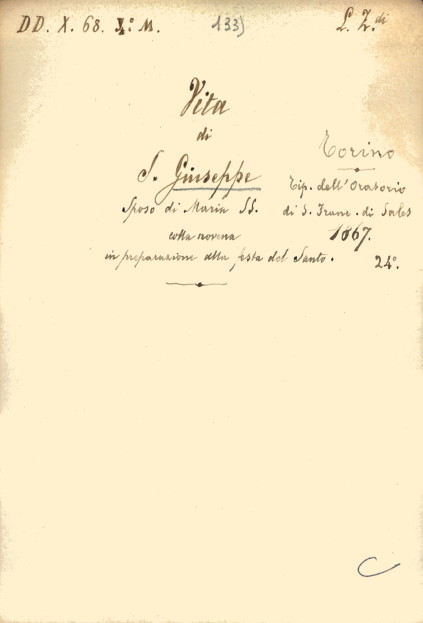 DD. X. 68. I.° M. 133) L. Z.di
Vita
di
S. Giuseppe
Sposo di Maria SS.
colla novena
in preparazione alla festa del Santo.
Torino
Tip. dell'Oratorio
di S. Franc. di Sales
1867.
24°.
C